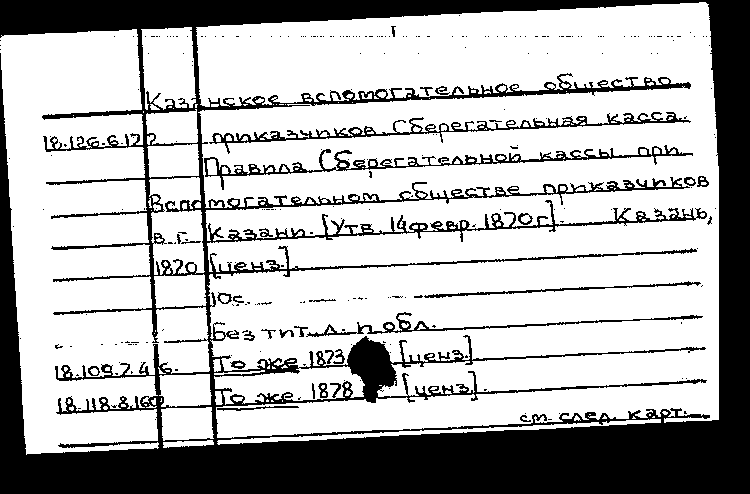 I
Казанское вспомогательное общество
18.126.6.172 приказчиков. Сберегательная касса.
Правила Сберегательной кассы при
Вспомогательном обществе приказчиков
в г. Казани. [Утв. 14 февр. 1870 г.]. Казань,
1870 [ценз].
10с.
Без тит. л. и обл.
18.109.7.46. То же. 1873 [ценз].
18.118.8.160. То же. 1878 [ценз].
см. след. карт.